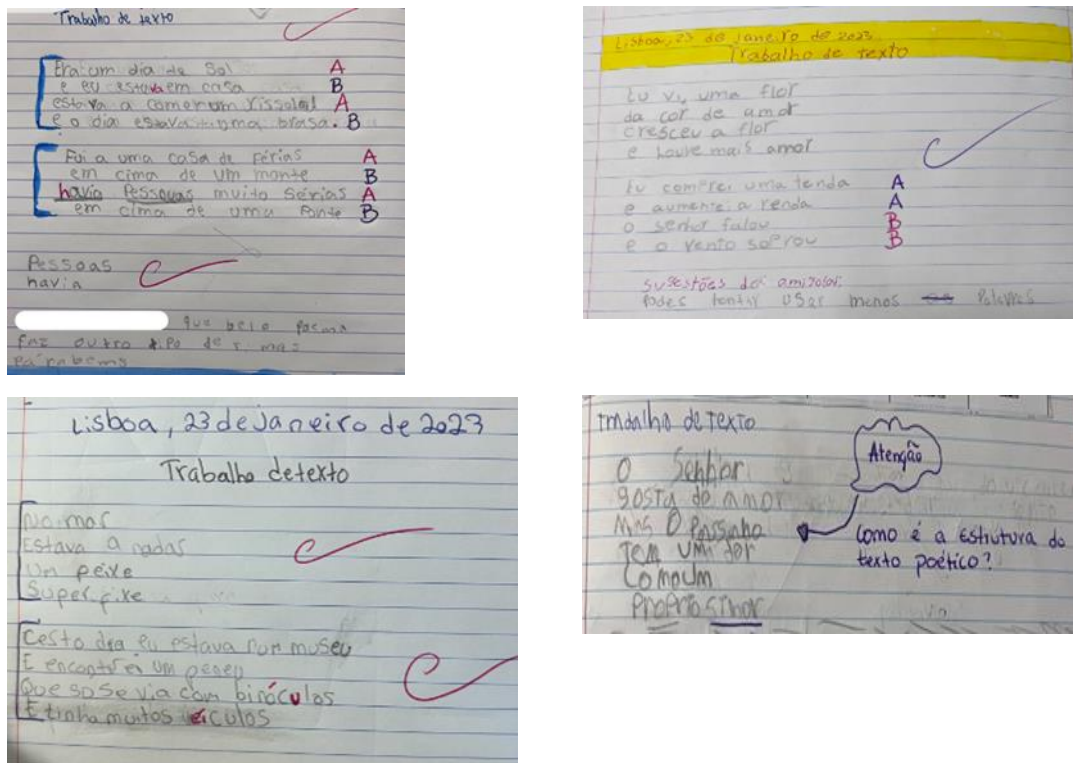 Trabalho de texto
Era um dia de Sol A
e eu estava em casa B
estava a comer um rissol A
e o dia estava uma brasa. B
Fui a uma casa de férias A
em cima de um monte B
havia Pessouas muito Sérias A
em cima de uma Ponte B
Pessoas
havia
que belo
faz outro tipo de rimas
parabems
Lisboa, 23 de janeiro de 2023
Trabalho de texto
Eu vi uma flor
da cor de amor
cresceu a flor
e houve mais amor
Eu comprei uma tenda A
e aumentei a renda A
o senhor falou B
e o vento soprou B
sugestões do
Podes tentar usar menos Palavras
Lisboa, 23 de Janeiro de 2023
Trabalho de texto
No mar
Estava a nadar
Um peixe
Super fixe
Certo dia eu estava num museu
E encontrei um peneu
Que só se via com binóculos
E tinha muitos veículos
Trabalho de Texto
O Senhor
gosta de amor
Mas O
Tem um dor
Como um
Proprio
Atenção
Como é a estrutura do
texto poético?